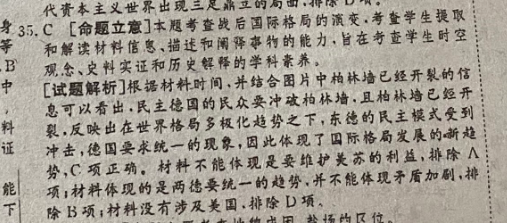 代资本主义世界出现三足鼎立的局面,排除D项。
身 35. C 【命题立意】本题考查战后国际格局的演变,考查学生提取
等 和解读材料信息、描述和阐释事物的能力,旨在考查学生时空
B 观念、史料实证和历史解释的学科素养。
中 【试题解析】根据材料时间,并结合图片中柏林墙已经开裂的信
息可以看出,民主德国的民众要冲破柏林墙,且柏林墙已经开
料 裂,反映出在世界格局多极化趋势之下,东德的民主模式受到
证 冲击,德国要求统一的现象,因此体现了国际格局发展的新趋
势,C项正确。材料不能体现是要维护美苏的利益,排除A
能 项;材料体现的是两德要统一的趋势,并不能体现矛盾加剧,排
下 除B项;材料没有涉及美国,排除D项。